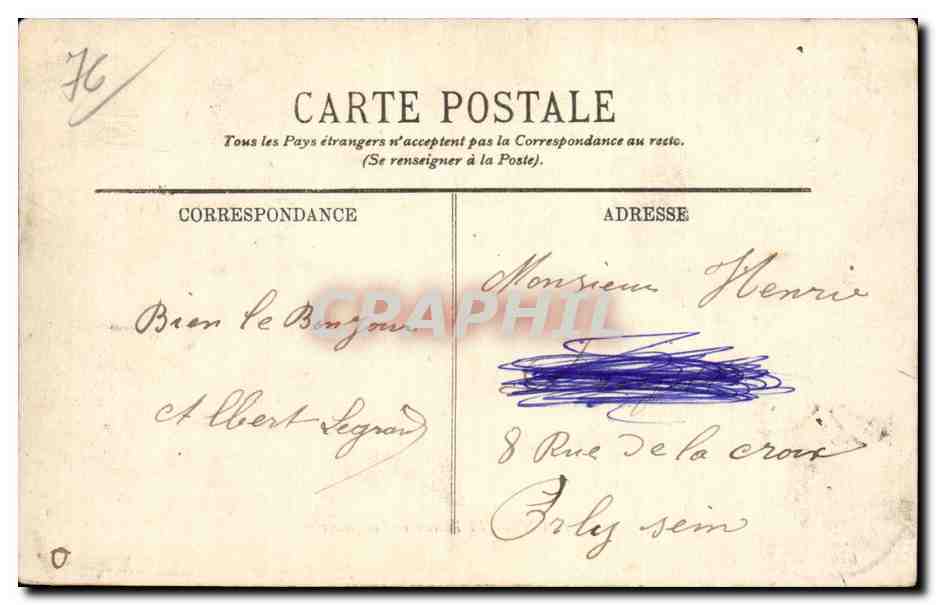 76
CARTE POSTALE
Tous les Pays étrangers n'acceptent pas la Correspondance au recto.
(Se renseigner à la Poste).
CORRESPONDANCE
ADRESSE
Bien le Bonjour
Albert Legrand
Monsieur Henrie
8 Rue de la croix
Orly sein
CPAPHIL
0